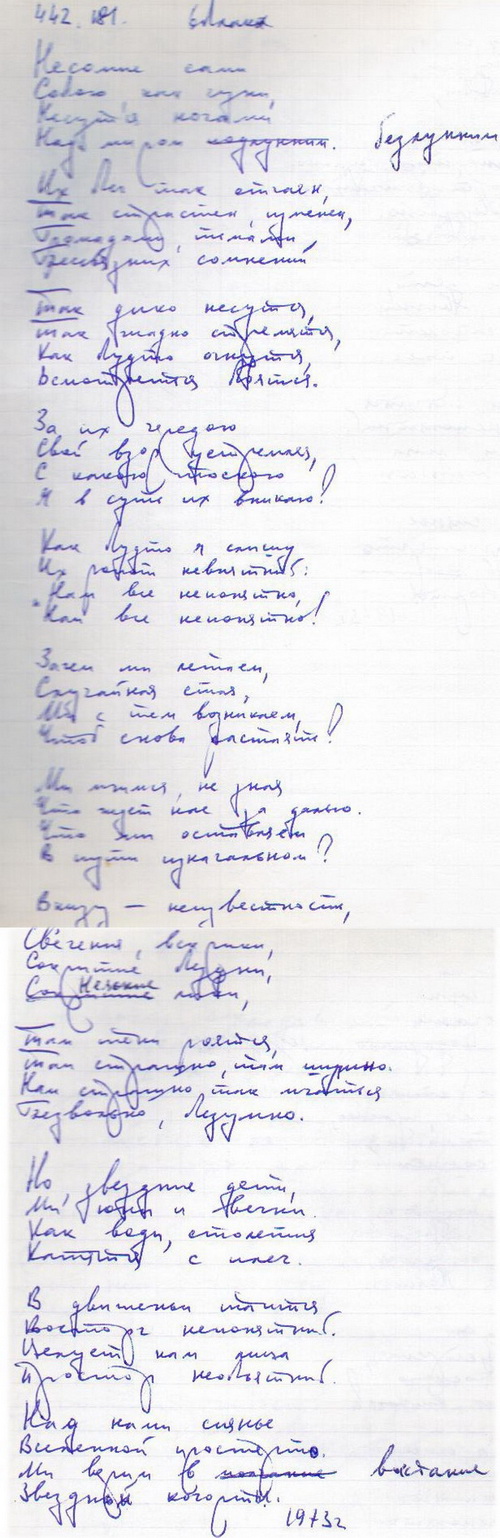 442. 181. Облака
Несомые сами
Собою как судьи,
Несутся ночами
Над миром подлунным. безлунным
Их бег так отчаян,
Так страстен, изменен,
Громадами, тьмами
Бессвязных сомнений
Так дико несутся,
Так жадно стремятся,
Как будто очнутся,
Осмотрятся
За их чередою
Свой взор устремляя,
С какою тоскою
Я в суть их вникаю!
Как будто я слышу
Их ропот невнятный:
"Нам все непонятно,
Нам все непонятно!
Зачем мы летаем,
Случайная стая,
Мы с тем возникаем,
Чтоб снова растаять?
Мы мчимся, не зная
Что ждет нас за далью.
Что мы оставляем
В пути изначальном?
Внизу — неизвестности,
Свеченья, вскрики,
Сокрытые бездны,
Сокрытые Неясные лики,
Там тени роятся,
Там страшно, там шумно.
Нам страшно так мчаться
Безвольно, бездумно.
Но, звездные дети,
Мы юны и вечны.
Как воды, столетия
Катятся с плеч.
В движеньи таится
Восторг непонятный.
Целует нам лица
Простор необъятный.
Над нами сиянье
Вселенной простерто.
Мы верим в восстание
Звездной когорты.
1973г